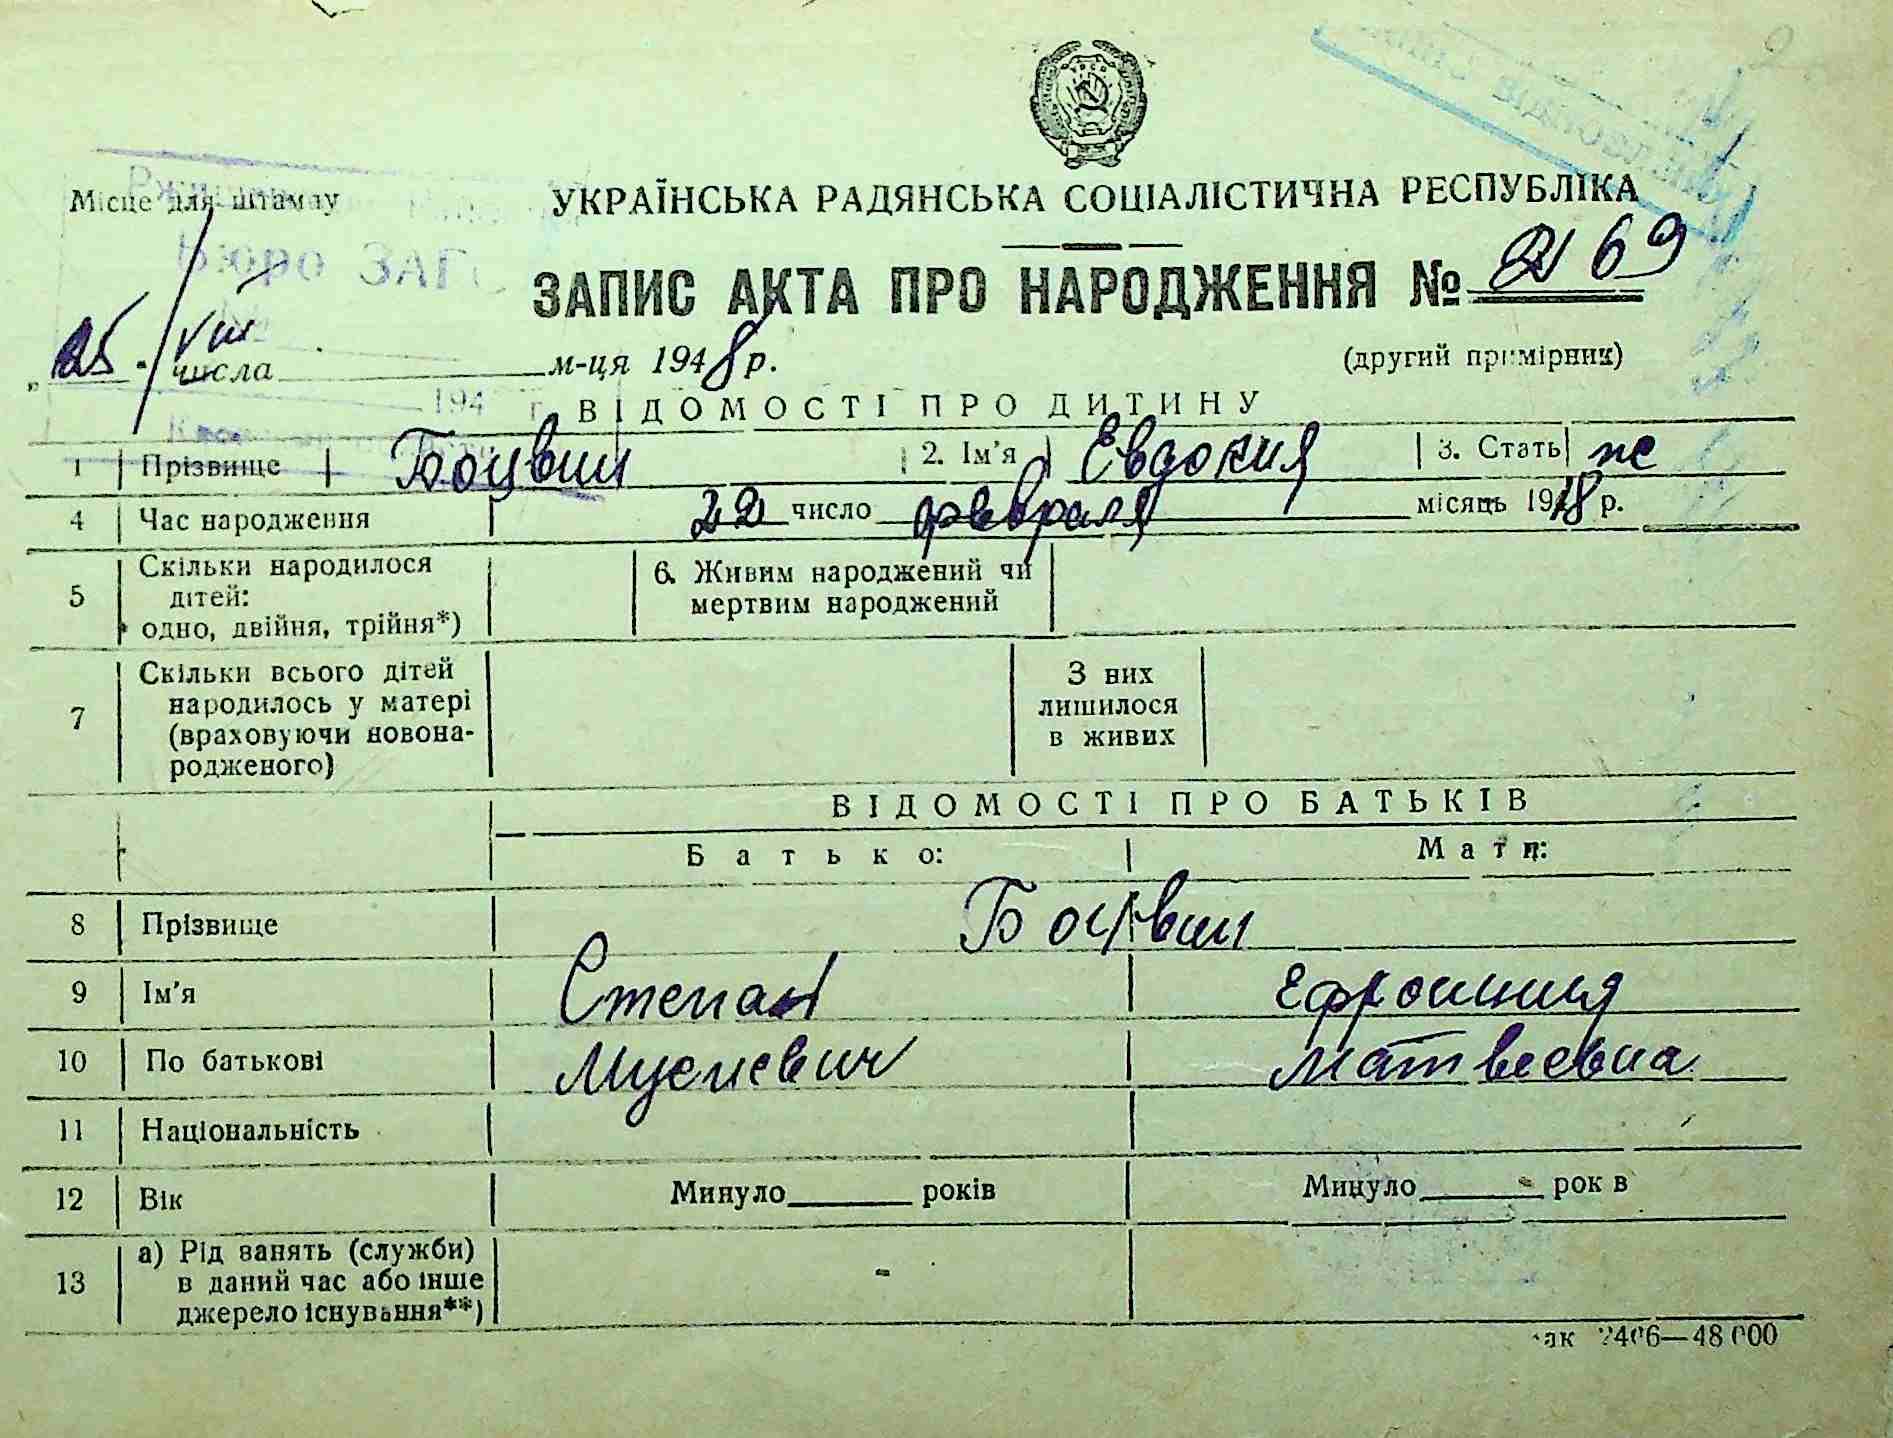 Місце для штампу
УКРАЇНСЬКА РАДЯНСЬКА СОЦІАЛІСТИЧНА РЕСПУБЛІКА
Бюро ЗАГС
ЗАПИС АКТА ПРО НАРОДЖЕННЯ № 69
„25" VIII числа м-ця 1948 р.
(другий примірник)
194 г.
ВІДОМОСТІ ПРО ДИТИНУ
1 Прізвище Боцвин 2. Ім'я Евдокия 3. Стать ж
4 Час народження 22 число февраля місяць 1918 р.
5 Скільки народилося дітей: одно, двійня, трійня*) 6. Живим народжений чи мертвим народжений
7 Скільки всього дітей народилось у матері (враховуючи новонародженого) З них лишилося в живих
ВІДОМОСТІ ПРО БАТЬКІВ
Батько: Мати:
8 Прізвище Боцвин
9 Ім'я Степан Ефросиния
10 По батькові Мусиевич Матвеевна
11 Національність
12 Вік Минуло років Минуло рок в
13 а) Рід занять (служби) в даний час або інше джерело існування**)
ак 2406—48 000